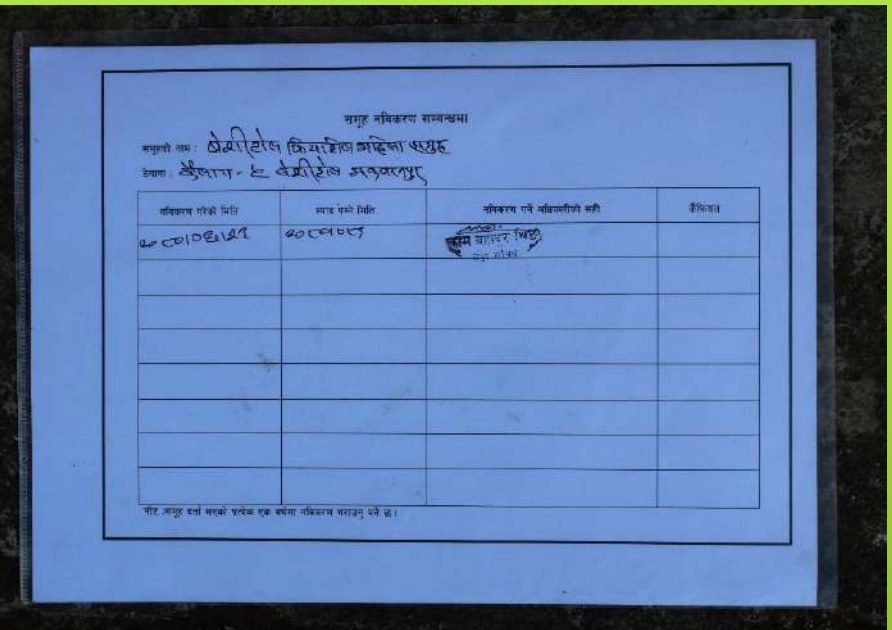 समूह नविकरण सम्बन्धमा
समूहको नाम : बेशीटोल क्रियाशिल महिला समुह
ठेगाना : कैलाश - ८ बेशीटोल मकवानपुर
नविकरण गरेको मिति म्याद थप्ने मिति नविकरण गर्ने अधिकारीको सही कैफियत
बहादुर
नोट :समूह दर्ता भएको प्रत्येक एक वर्षमा नविकरण गराउनु पर्ने छ।